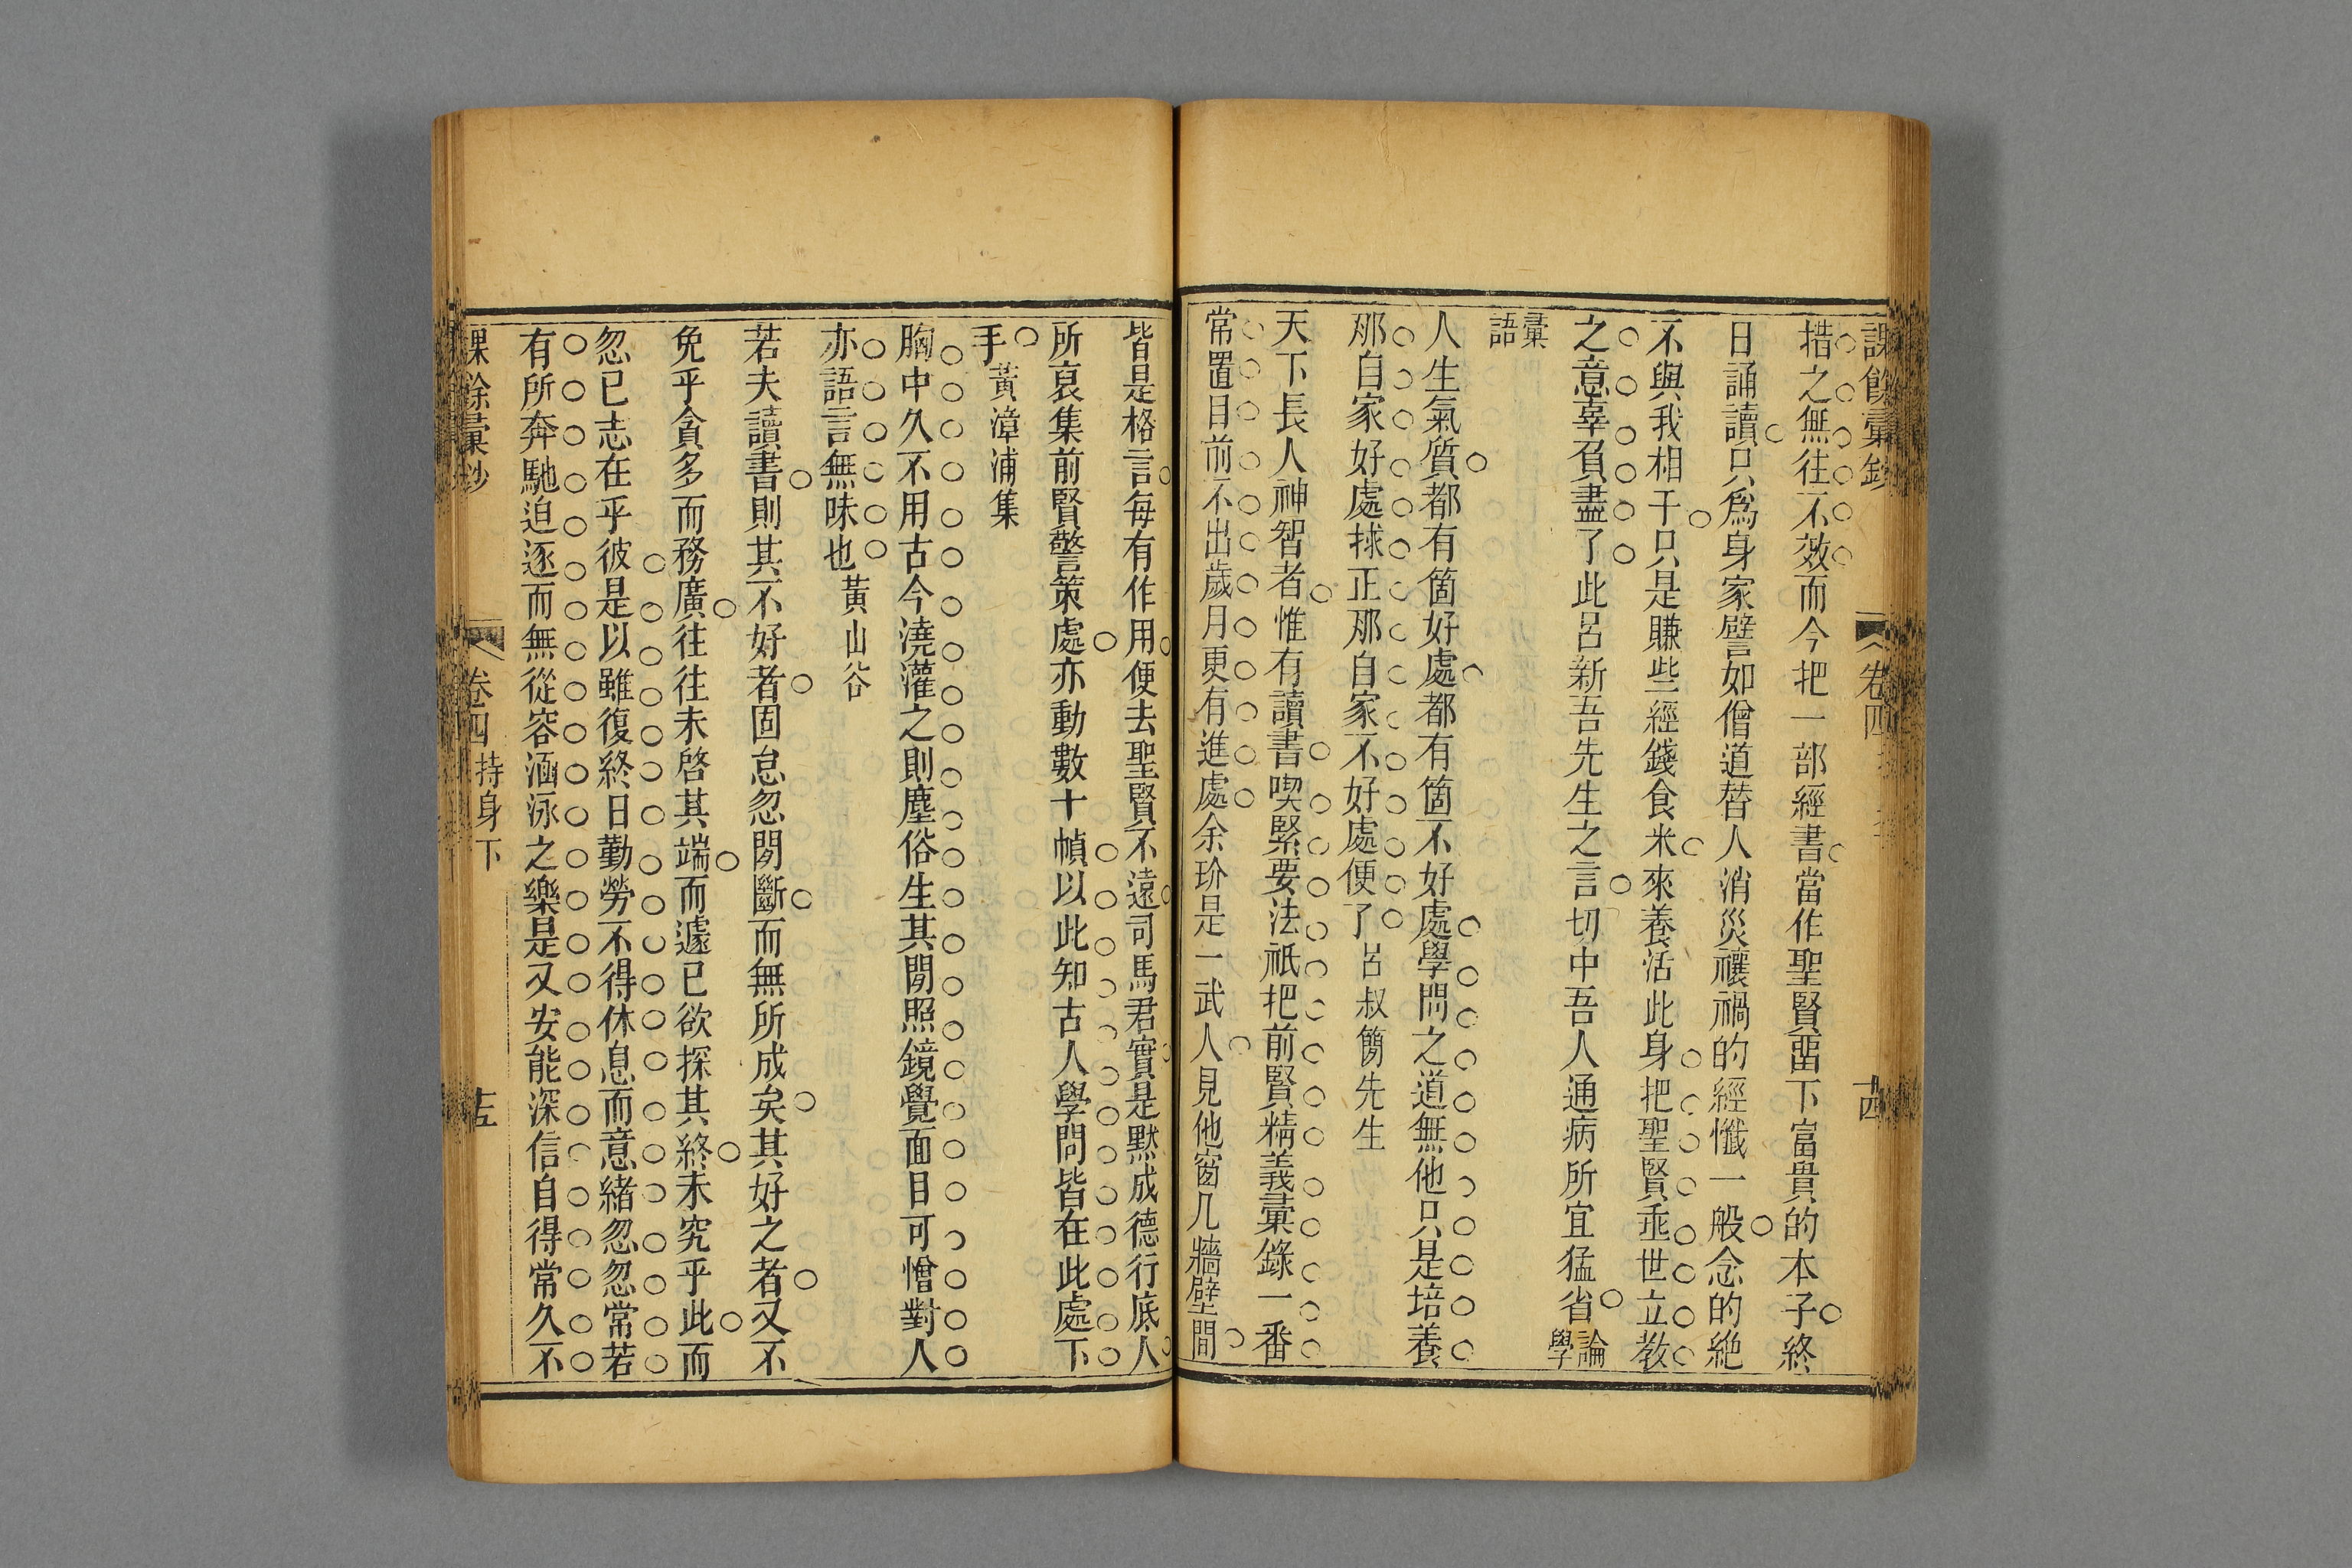 課餘彙鈔 卷四 十四
措之無往不效而今把一部經書當作聖賢畱下富貴的本子終
日誦讀只爲身家譬如僧道替人消災禳禍的經懺一般念的絶
不與我相干只是賺些經錢食米來養活此身把聖賢垂世立教
之意辜負盡了此呂新吾先生之言切中吾人通病所宜猛省論學
彙語
人生氣質都有箇好處都有箇不好處學問之道無他只是培養
那自家好處捄正那自家不好處便了呂叔簡先生
天下長人神智者惟有讀書喫緊要法祇把前賢精義彙錄一番
常置目前不出歲月更有進處余玠是一武人見他窗几牆壁間
皆是格言每有作用便去聖賢不遠司馬君實是默成德行底人
所裒集前賢警策處亦動數十幀以此知古人學問皆在此處下
手黃漳浦集
胸中久不用古今澆灌之則塵俗生其閒照鏡覺面目可憎對人
亦語言無味也黃山谷
若夫讀書則其不好者固怠忽閒斷而無所成矣其好之者又不
免乎貪多而務廣往往未啓其端而遽已欲探其終未究乎此而
忽已志在乎彼是以雖復終日勤勞不得休息而意緒忽忽常若
有所奔馳迫逐而無從容涵泳之樂是又安能深信自得常久不
課餘彙鈔 卷四 持身下 十五